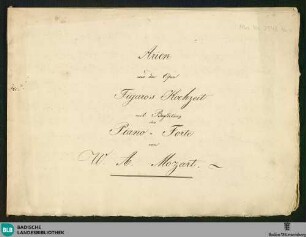 Arien
aus der Oper
Figaro's Hochzeit
mit Begleitung
des
Piano-Forte
von
W. A. Mozart.
BLB
BADISCHE
LANDESBIBLIOTHEK
Baden-Württemberg